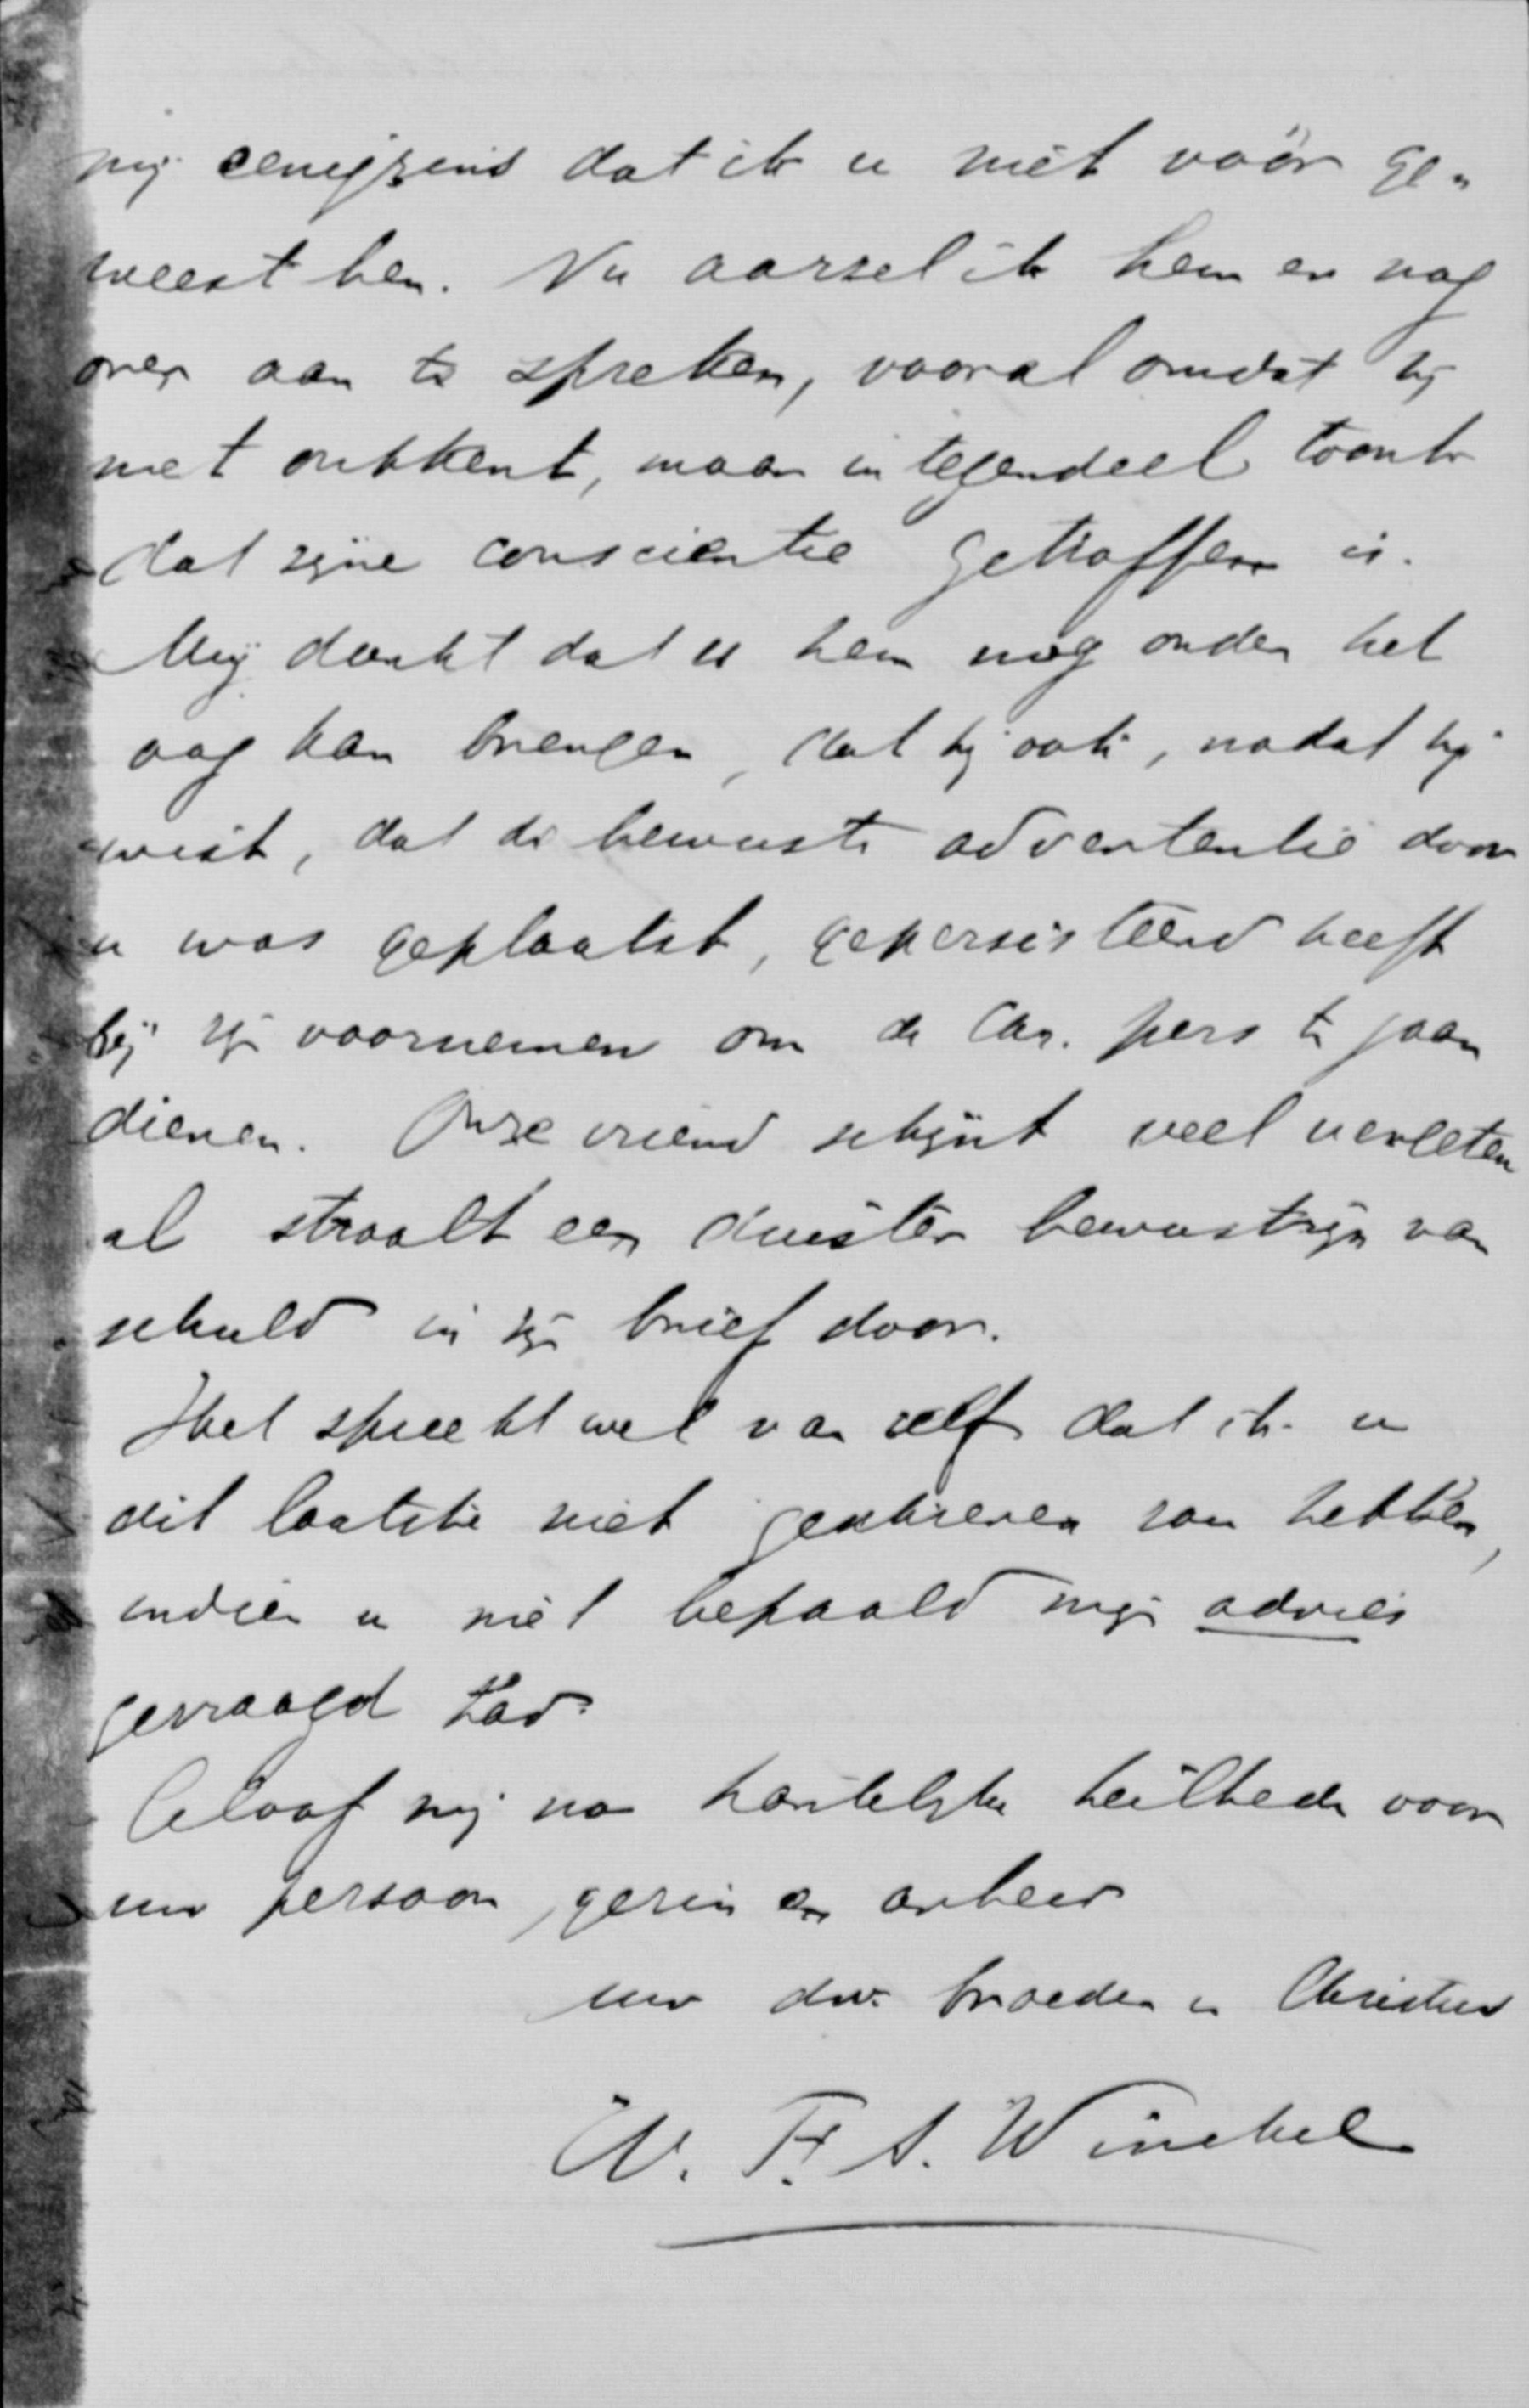 mij eenigzins dat ik u niet vóór ge-
weest ben. Nu aarzel ik hem er nog
over aan te spreken, vooral omdat hij
niet ontkent, maar integendeel toont
dat zijne conscientie getroffen is.
Mij dunkt dat u hem nog onder het
oog kan brengen, dat hij ook, nadat hij
wist, dat de bewuste advertentie door
u was geplaatst, gepersisteerd heeft
bij zijn voornemen om de Chr. pers te gaan
dienen. Onze vriend schijnt veel vergeten
al straalt een duister bewustzijn van
schuld in zijn brief door.
Het spreekt wel van zelf dat ik u
dit laatste niet geschreven zou hebben,
indien u niet bepaald mijn advies
gevraagd had.
Geloof mij na hartelijke heilbede voor
uw persoon, gezin en arbeid
uw dw. broeder in Christus
W. F. A. Winckel